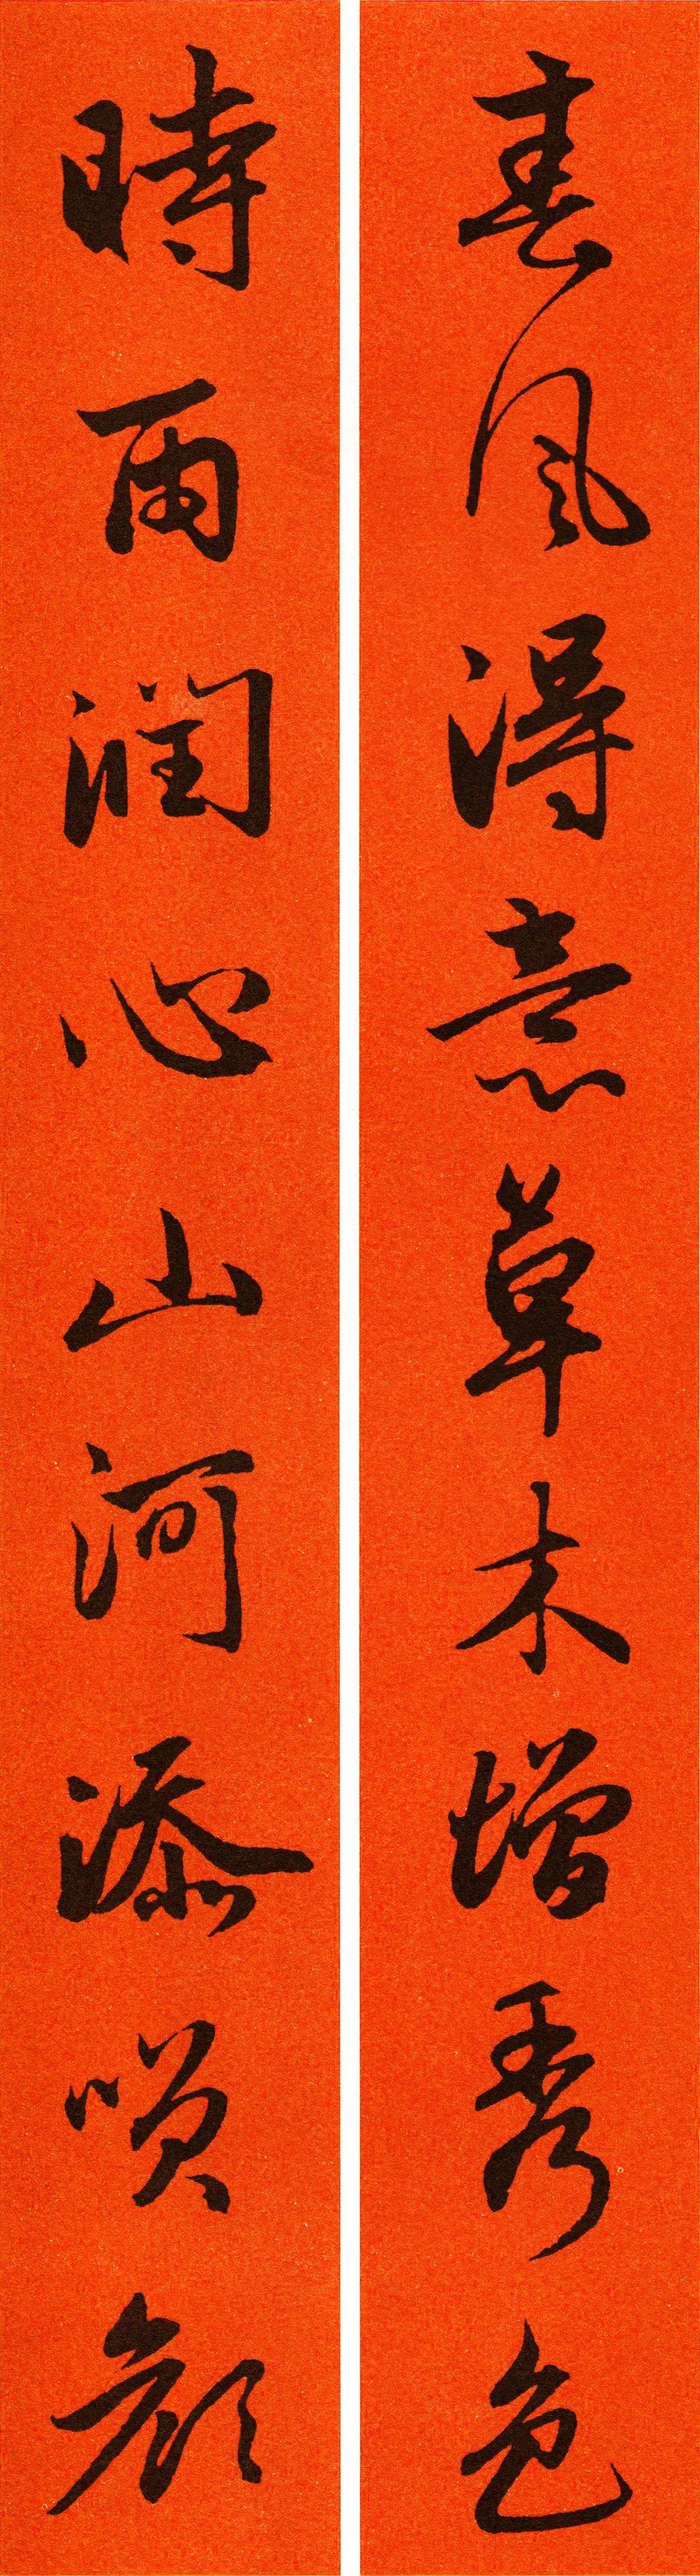 春風得意草木增秀色
時雨潤心山河添咲顏